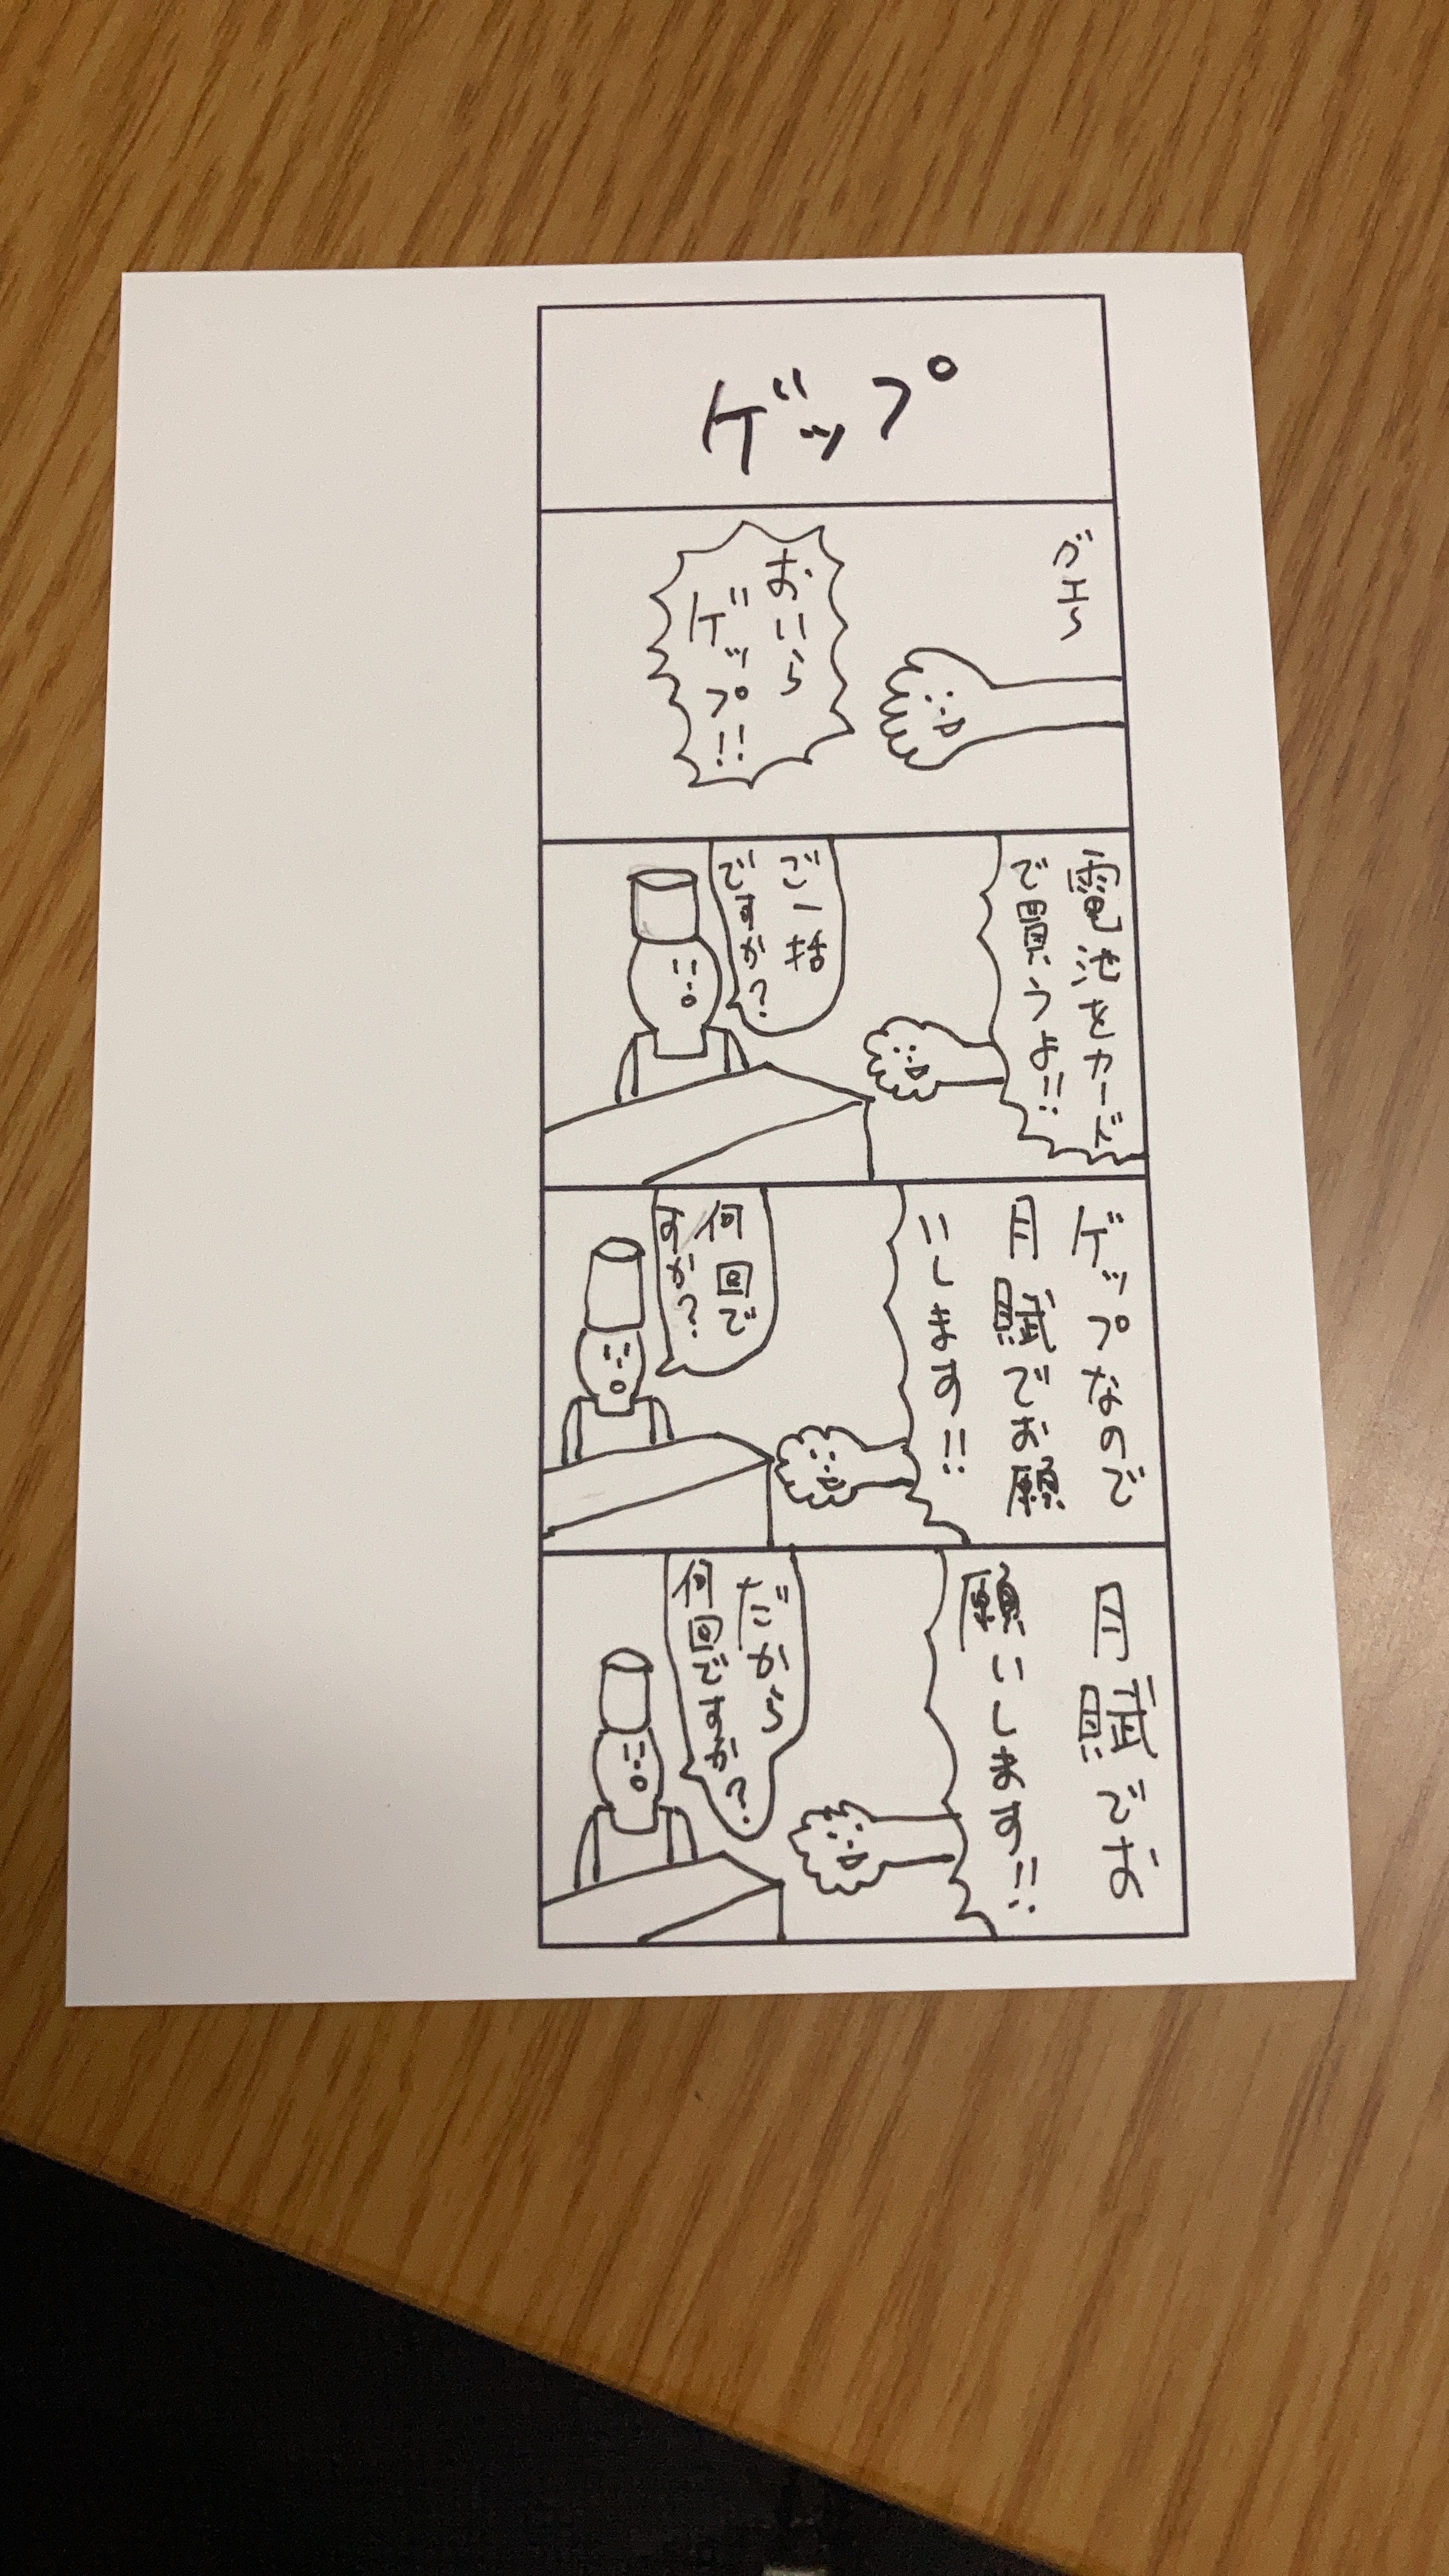 ゲップ
ガエ〜
おいら
ゲップ!!
電池をカード
で買うよ!!
ご一括
ですか?
ゲップなので
月賦でお願
いします!!
何回で
すか?
月賦でお
願いします!!
だから
何回ですか?